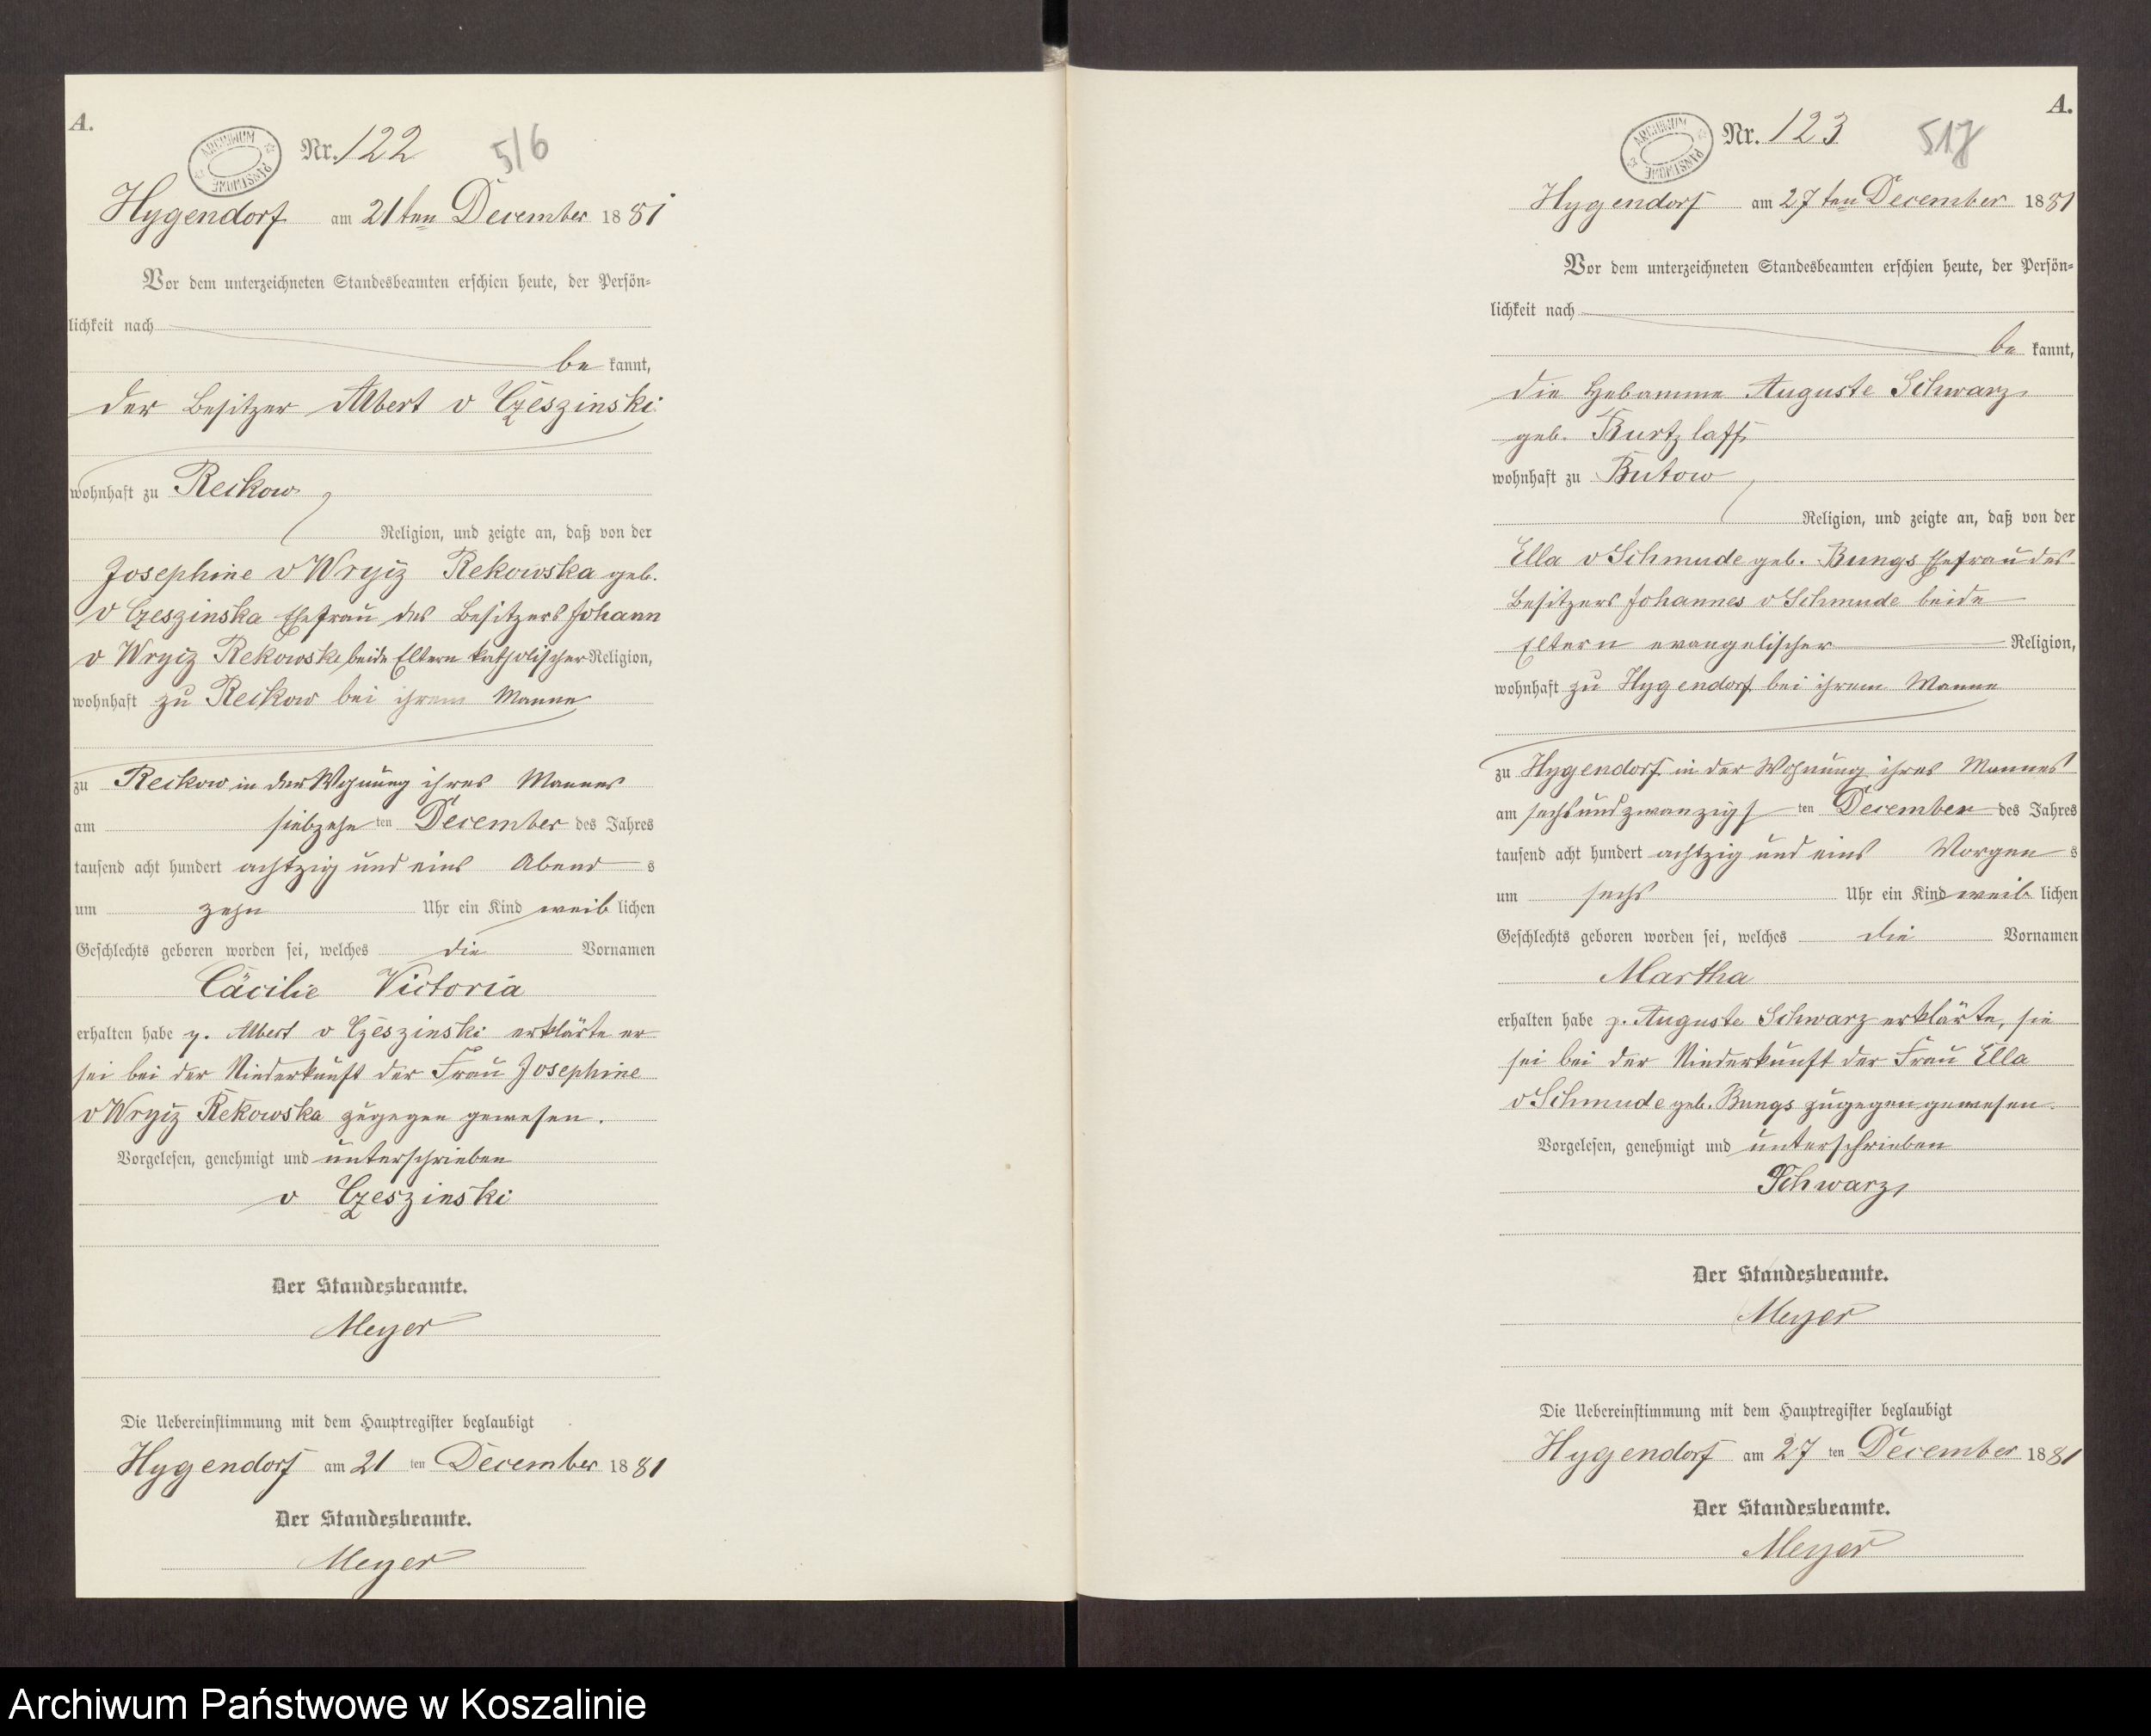 A.
ARCHIWUM PAŃSTWOWE
Nr. 122
516
Hygendorf am 21ten December 1881
Vor dem unterzeichneten Standesbeamten erschien heute, der Persön-
lichkeit nach
be kannt,
der Besitzer Albert v Czeszinski
wohnhaft zu Reckow
Religion, und zeigte an, daß von der
Josephine v Wrycz Rekowska geb.
v Czeszinska Ehefrau des Besitzers Johann
v Wrycz Rekowski, beide Eltern katholischer Religion,
wohnhaft zu Reckow bei ihrem Manne
zu Reckow in der Wohnung ihres Mannes
am siebzehn ten December des Jahres
tausend acht hundert achtzig und eins Abend s
um zehn Uhr ein Kind weib lichen
Geschlechts geboren worden sei, welches die Vornamen
Cäcilie Victoria
erhalten habe p. Albert v Czeszinski erklärte er
sei bei der Niederkunft der Frau Josephine
v Wrycz Rekowska zugegen gewesen.
Vorgelesen, genehmigt und unterschrieben
v Czeszinski
Der Standesbeamte.
Meyer
Die Uebereinstimmung mit dem Hauptregister beglaubigt
Hygendorf am 21 ten December 1881
Der Standesbeamte.
Meyer
A.
ARCHIWUM PAŃSTWOWE
Nr. 123
517
Hygendorf am 27ten December 1881
Vor dem unterzeichneten Standesbeamten erschien heute, der Persön-
lichkeit nach
be kannt,
die Hebamme Auguste Schwarz
geb. Kurtzlaff
wohnhaft zu Butow
Religion, und zeigte an, daß von der
Ella v Schmude geb. Bungs Ehefrau des
Besitzers Johannes v Schmude beide
Eltern evangelischer Religion,
wohnhaft zu Hygendorf bei ihrem Manne
zu Hygendorf in der Wohnung ihres Mannes
am sechs und zwanzigs ten December des Jahres
tausend acht hundert achtzig und eins Morgen s
um sechs Uhr ein Kind weib lichen
Geschlechts geboren worden sei, welches die Vornamen
Martha
erhalten habe p. Auguste Schwarz erklärte, sie
sei bei der Niederkunft der Frau Ella
v Schmude geb. Bungs zugegen gewesen.
Vorgelesen, genehmigt und unterschrieben
Schwarz
Der Standesbeamte.
Meyer
Die Uebereinstimmung mit dem Hauptregister beglaubigt
Hygendorf am 27 ten December 1881
Der Standesbeamte.
Meyer
Archiwum Państwowe w Koszalinie